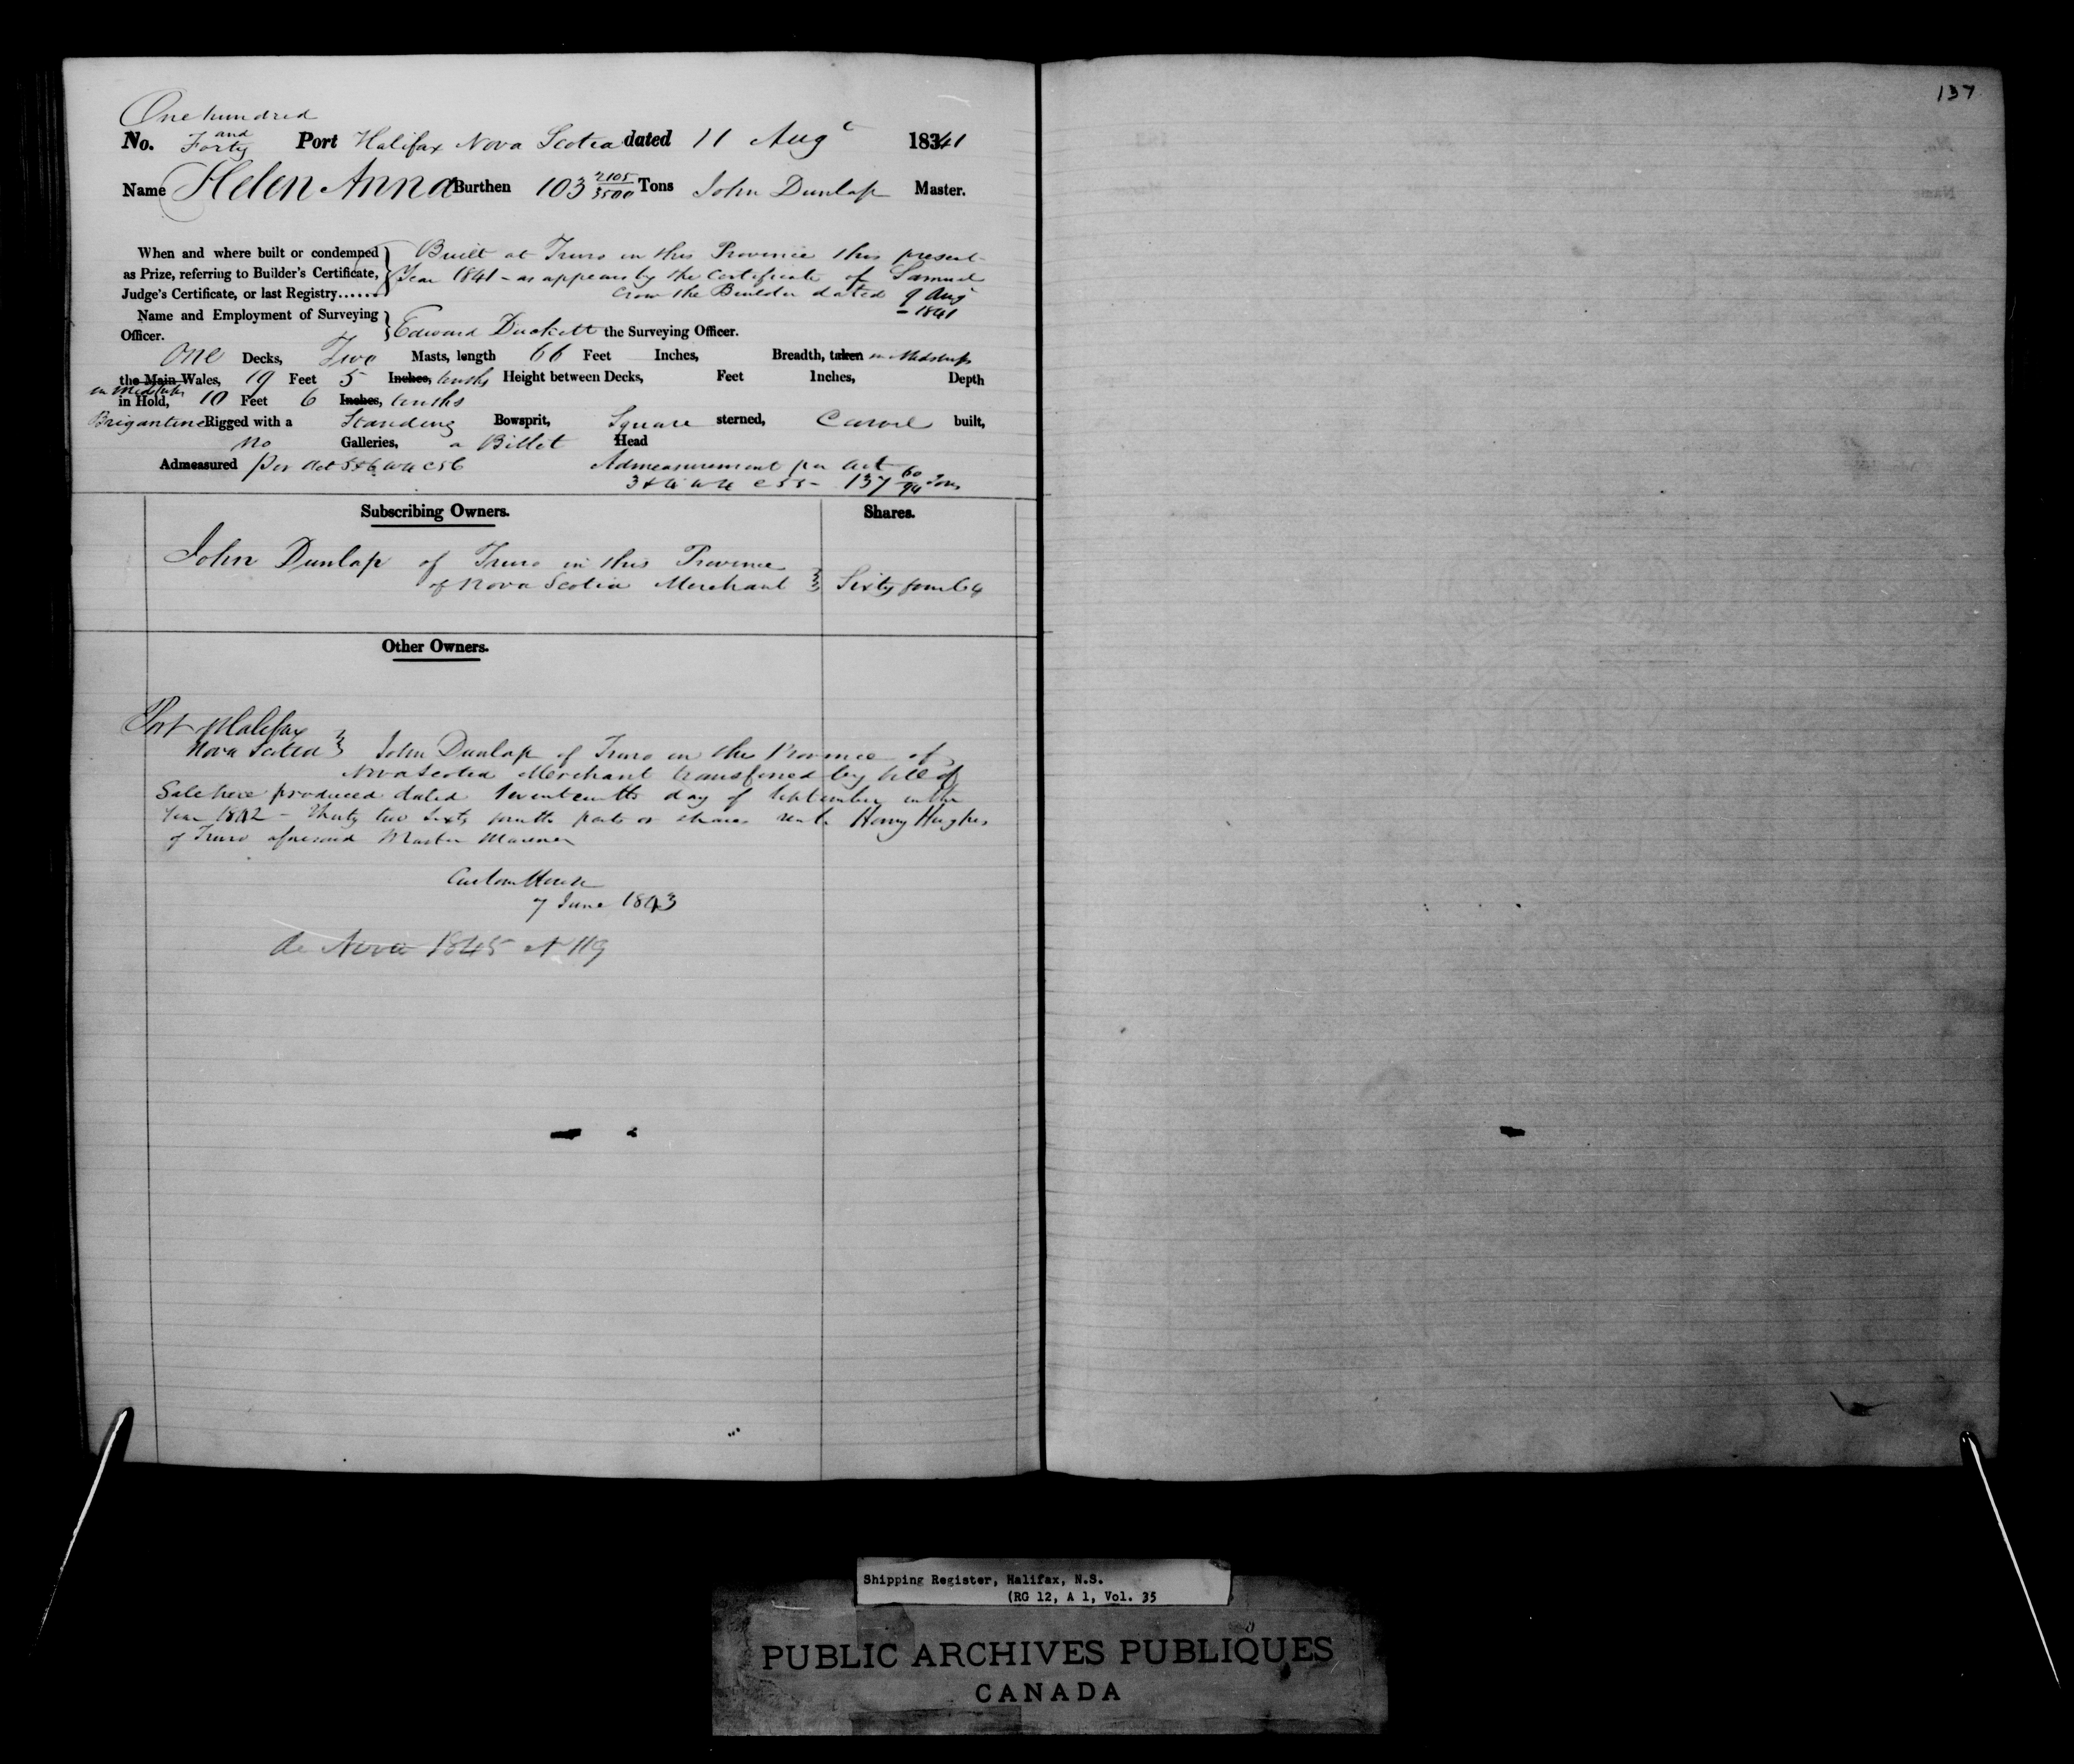 137
One hundred
and
No. Forty Port Halifax Nova Scotia dated 11 Augt 18341
Name Helen Anna Burthen 103 2105/3500 Tons John Dunlap Master.
When and where built or condemned } Built at Truro in this Province this present
as Prize, referring to Builder's Certificate, Year 1841 - as appears by the Certificate of Samuel
Judge's Certificate, or last Registry...... Crow the Builder dated 9 Augt
- 1841
Name and Employment of Surveying
Officer. } Edward Duckett the Surveying Officer.
One Decks, Two Masts, length 66 Feet Inches, Breadth, taken in Midships
the Main Wales, 19 Feet 5 Inches, tenths Height between Decks, Feet Inches, Depth
in Midships
in Hold, 10 Feet 6 Inches, tenths
Brigantine Rigged with a Standing Bowsprit, Square sterned, Carvel built,
No Galleries, a Billet Head
Admeasured per Act 5 & 6 W4 C56 Admeasurement per Act
3 & 4 W4 C55 - 137 60/94 Tons
Subscribing Owners. Shares.
John Dunlap of Truro in this Province
of Nova Scotia Merchant } Sixty four 64
Other Owners.
Port of Halifax
Nova Scotia } John Dunlap of Truro in the Province of
Nova Scotia Merchant transferred by bill of
Sale here produced dated Seventeenth day of September in the
Year 1842 - Thirty two Sixty fourth parts or shares unto Henry Hughes
of Truro aforesaid Master Mariner
Custom House
7 June 1843
de Novo 1845 N 119
Shipping Register, Halifax, N.S.
(RG 12, A 1, Vol. 35
PUBLIC ARCHIVES PUBLIQUES
CANADA